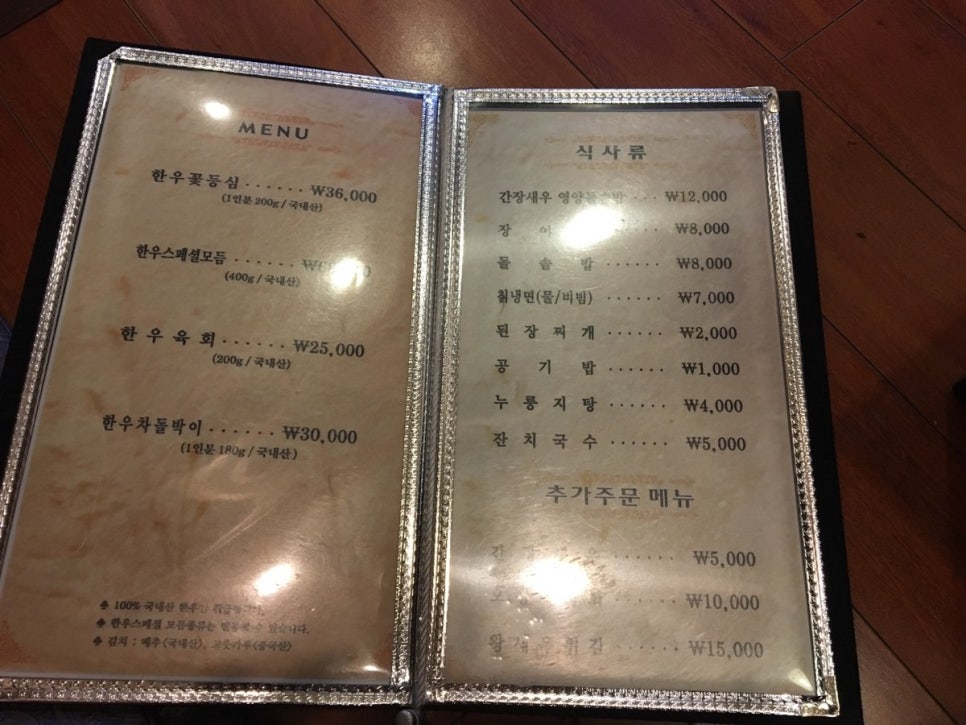 MENU
한우꽃등심 ...... ₩36,000
(1인분 200g / 국내산)
한우스페셜모듬 ......
(400g / 국내산)
한우육회 ....... ₩25,000
(200g / 국내산)
한우차돌박이 ....... ₩30,000
(1인분 180g / 국내산)
♣ 100% 국내산 한우만
♣ 한우스페셜 모듬종류는 변동될 수 있습니다.
♣ 김치 : 배추(국내산), 고춧가루(중국산)
식사류
간장새우 영양돌솥밥 ... ₩12,000
장 ₩8,000
돌솥밥 ...... ₩8,000
칡냉면(물/비빔) ...... ₩7,000
된장찌개 ...... ₩2,000
공기밥 ...... ₩1,000
누룽지탕 ...... ₩4,000
잔치국수 ...... ₩5,000
추가주문 메뉴
₩5,000
₩10,000
왕새우튀김 ...... ₩15,000